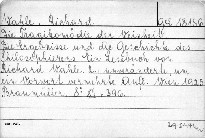 Wahle, Richard.
Die Tragikomödie der Weisheit
Die Ergebnisse und die Geschichte des
Philosophierens. Ein Lesebuch von
Richard Wahle. 2. unveränderte, um
ein Vorwort vermehrte Aufl. Wien 1925
Braumüller. 8°